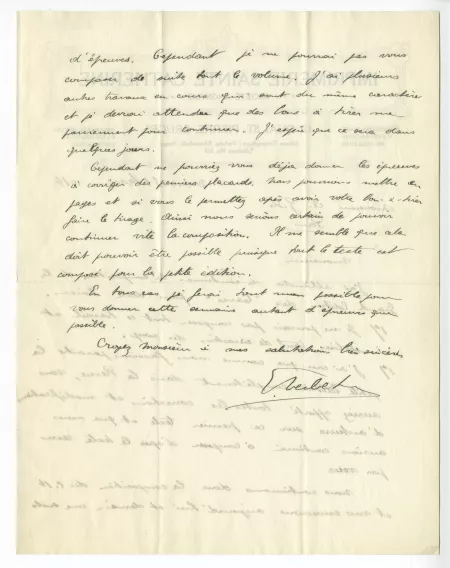 d'épreuves. Cependant je ne pourrai pas vous
composer de suite tout le volume. J'ai plusieurs
autres travaux en cours qui sont du même caractère
et je devrai attendre que des bons à tirer me
parviennent pour continuer. J'espère que ce sera dans
quelques jours.
Cependant ne pourriez vous déjà donner les épreuves
à corriger des premiers placards. Nous pourrions mettre en
pages et si vous le permettez après avoir votre bon à tirer
faire le tirage. Ainsi nous serions certain de pouvoir
continuer vite la composition. Il me semble que cela
doit pouvoir être possible puisque tout le texte est
composé pour la petite édition.
En tous cas je ferai tout mon possible pour
vous donner cette semaine autant d'épreuves que
possible.
Croyez Monsieur à mes salutations bien sincères